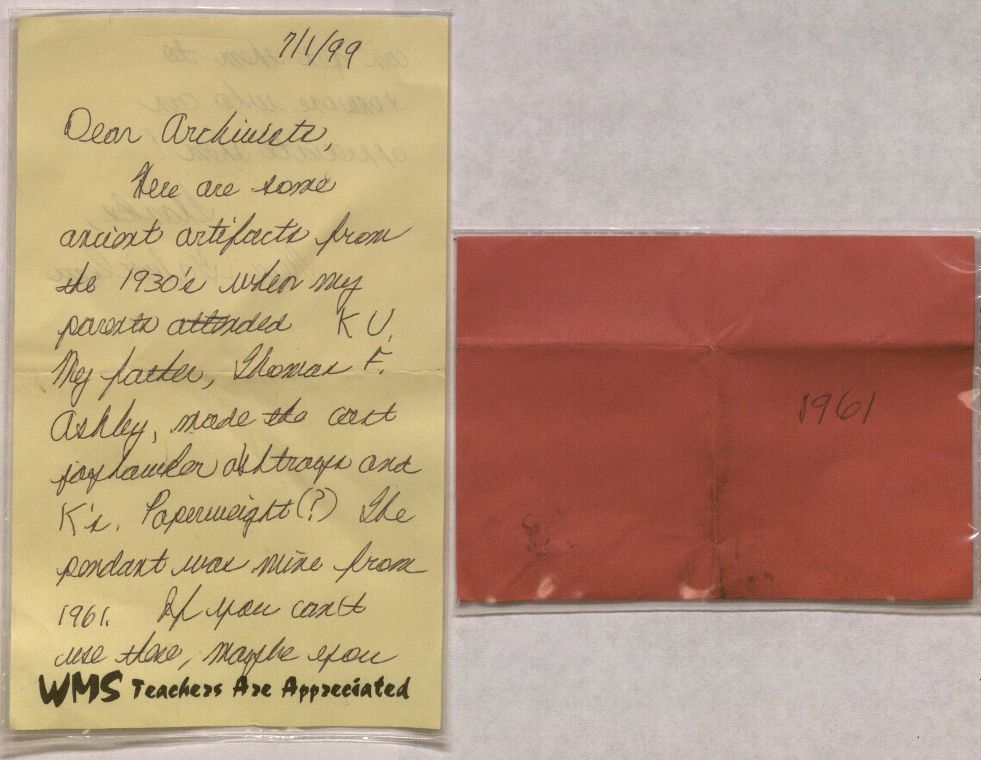 7/1/99
Dear Archivists,
Here are some
ancient artifacts from
the 1930's when my
parents attended KU.
My father, Thomas F.
Ashley, made the cast
jayhawker ashtrays and
K's. Paperweight(?) The
pendant was mine from
1961. If you can't
use these, maybe you
WMS Teachers Are Appreciated
1961